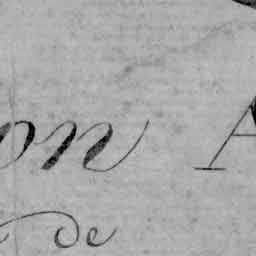 on A
de